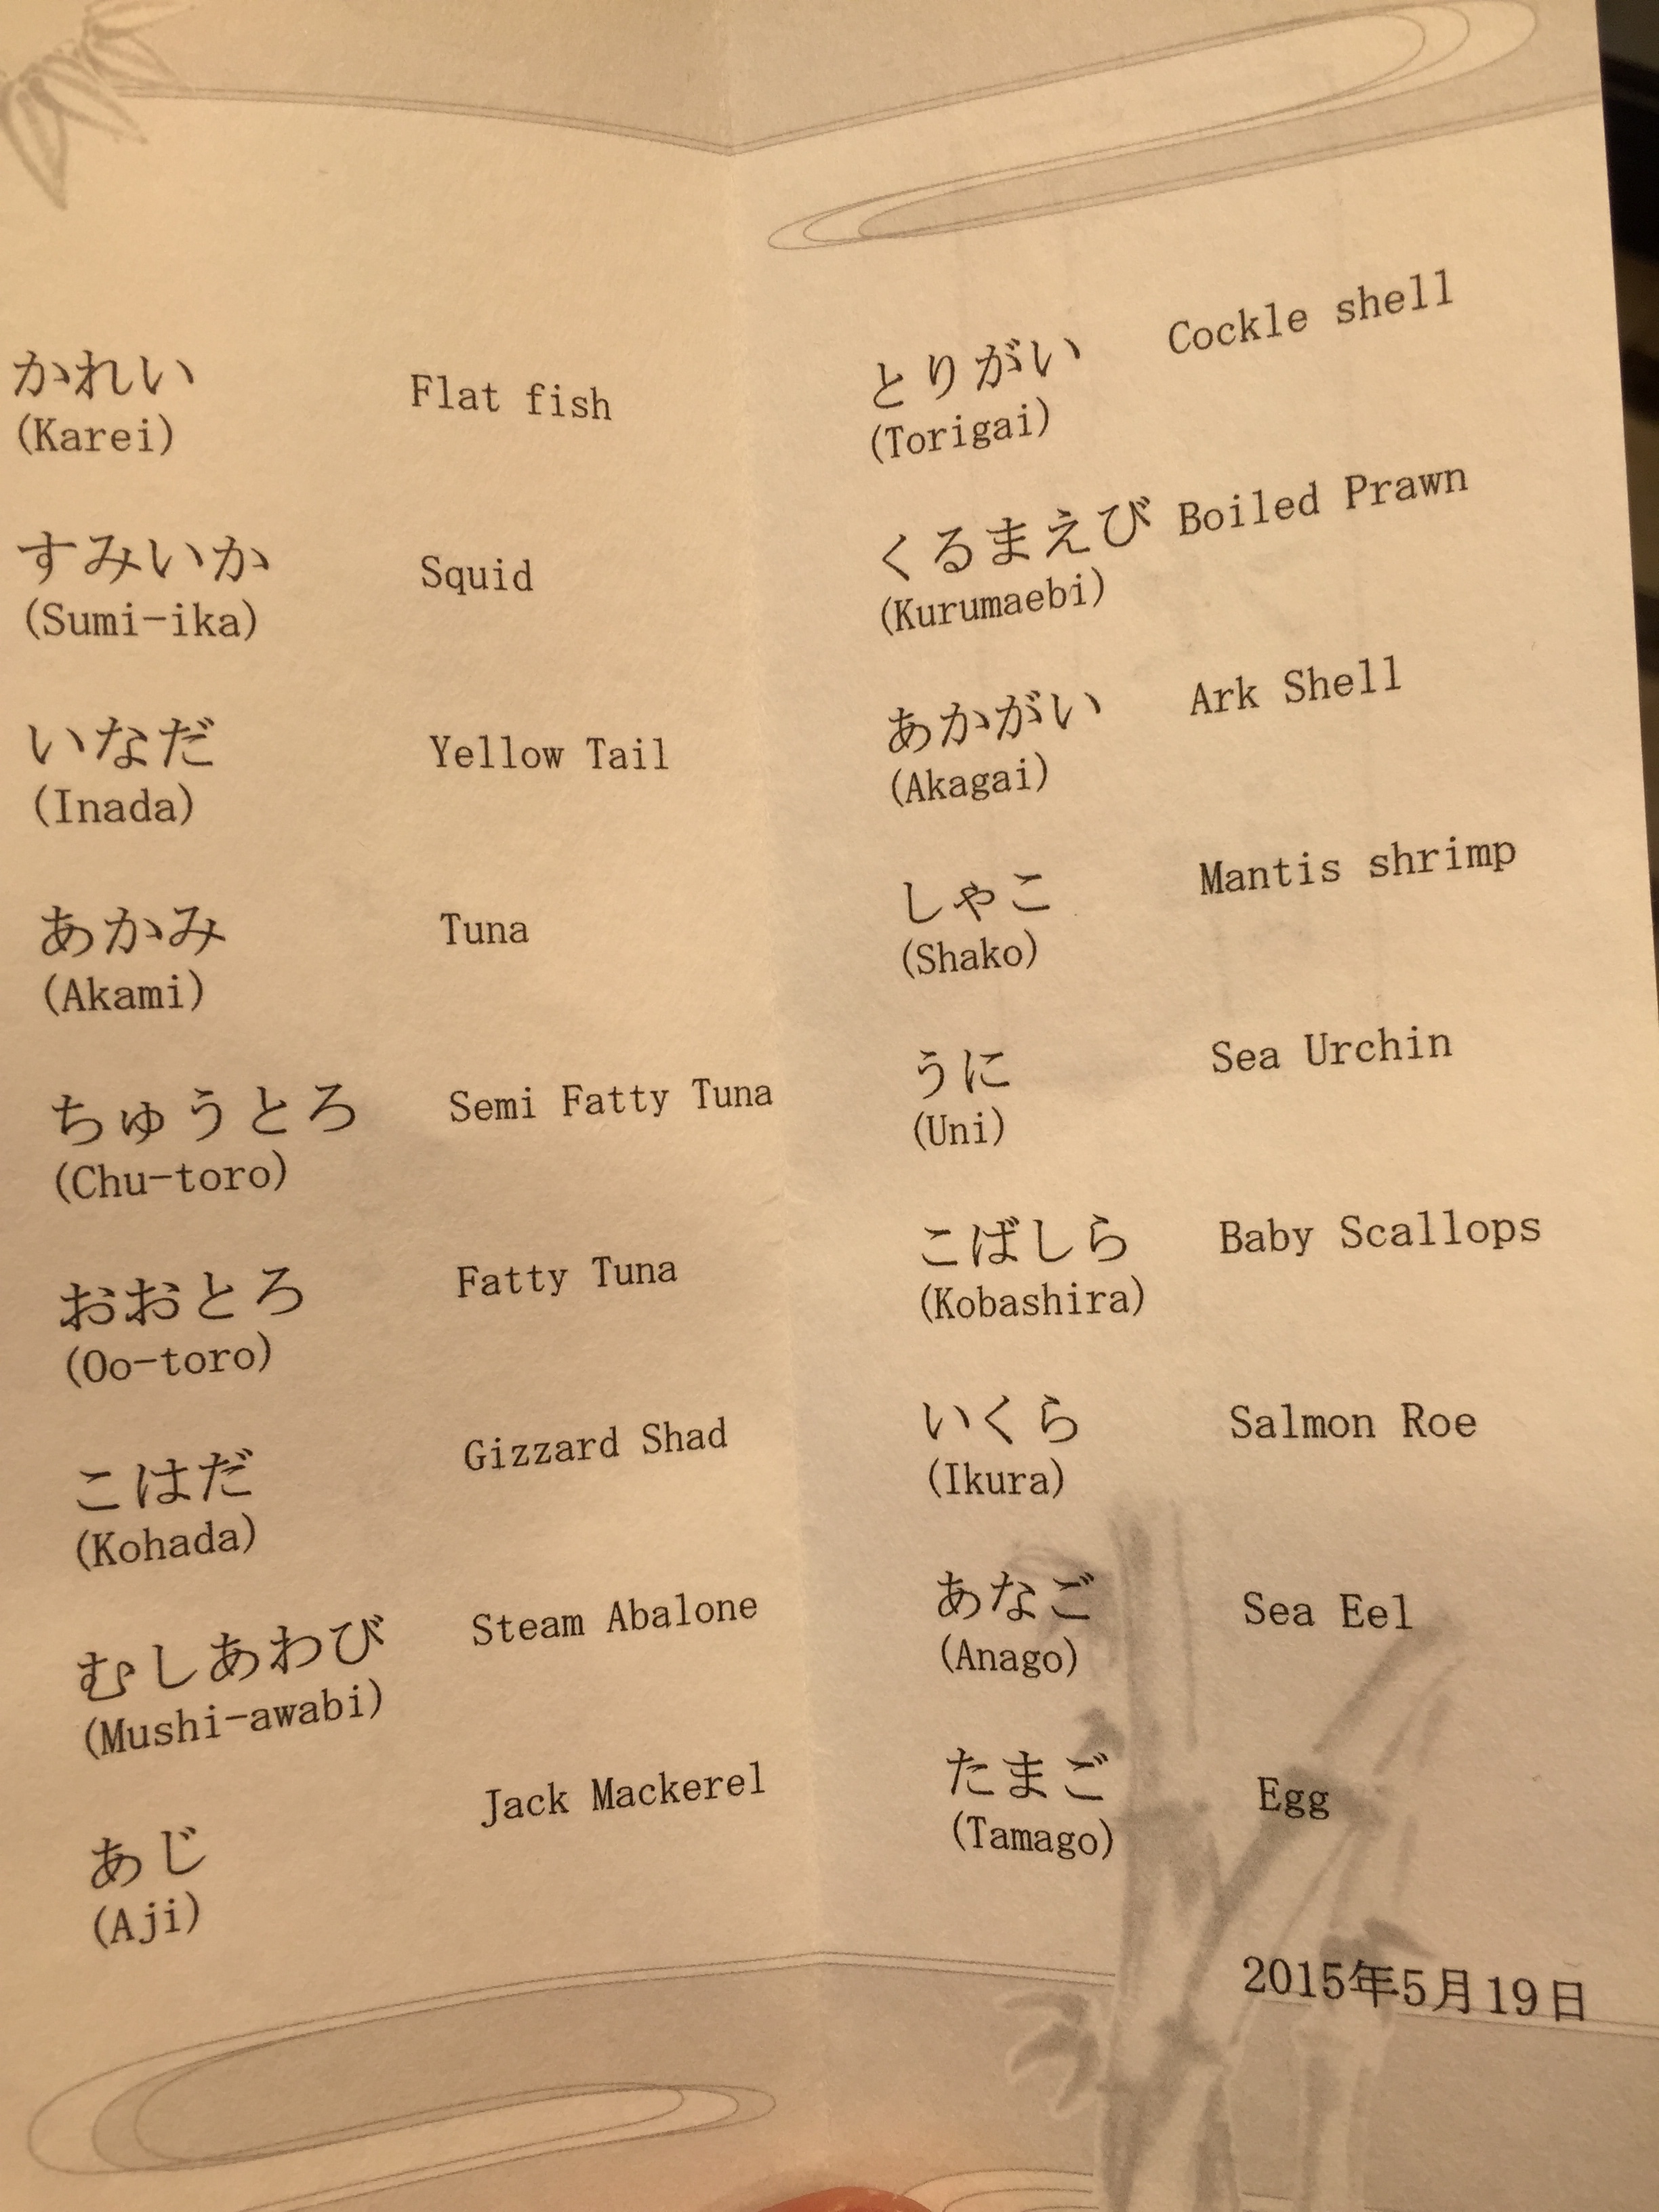 かれい Flat fish
(Karei)
すみいか Squid
(Sumi-ika)
いなだ Yellow Tail
(Inada)
あかみ Tuna
(Akami)
ちゅうとろ Semi Fatty Tuna
(Chu-toro)
おおとろ Fatty Tuna
(Oo-toro)
こはだ Gizzard Shad
(Kohada)
むしあわび Steam Abalone
(Mushi-awabi)
あじ Jack Mackerel
(Aji)
とりがい Cockle shell
(Torigai)
くるまえび Boiled Prawn
(Kurumaebi)
あかがい Ark Shell
(Akagai)
しゃこ Mantis shrimp
(Shako)
うに Sea Urchin
(Uni)
こばしら Baby Scallops
(Kobashira)
いくら Salmon Roe
(Ikura)
あなご Sea Eel
(Anago)
たまご Egg
(Tamago)
2015年5月19日